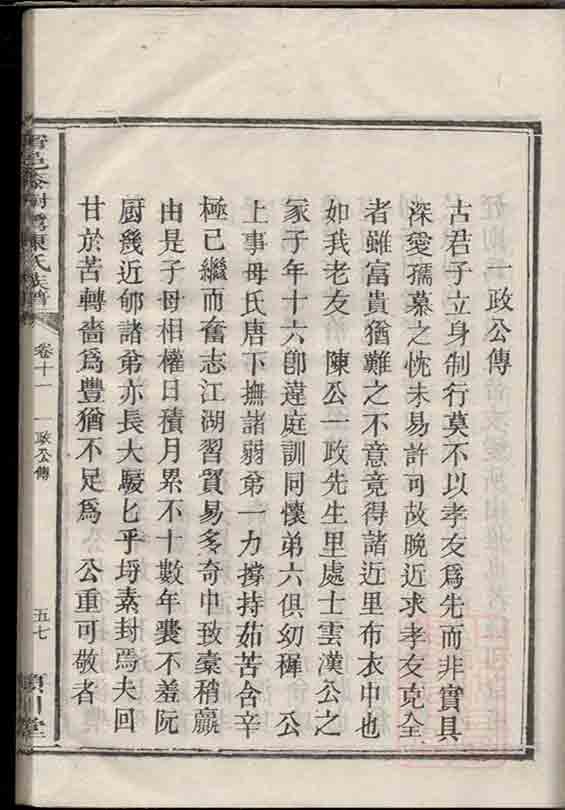 一政公傳
古君子立身制行莫不以孝友爲先而非實具
深愛孺慕之忱未易許可故晚近求孝友克全
者雖富貴猶難之不意竟得諸近里布衣中也
如我老友 陳公一政先生里處士雲漢公之
冢子年十六卽違庭訓同懷弟六俱幼穉 公
上事母氏唐下撫諸弱弟一力撐持茹苦含辛
極已繼而奮志江湖習貿易多奇中致橐稍贏
由是子母相權日積月累不十數年囊不羞阮
厨幾近郇諸弟亦長大駸匕乎埓素封焉夫回
甘於苦轉嗇爲豐猶不足爲 公重可敬者
陳氏族譜
卷十一 一政公傳
五七
潁川堂